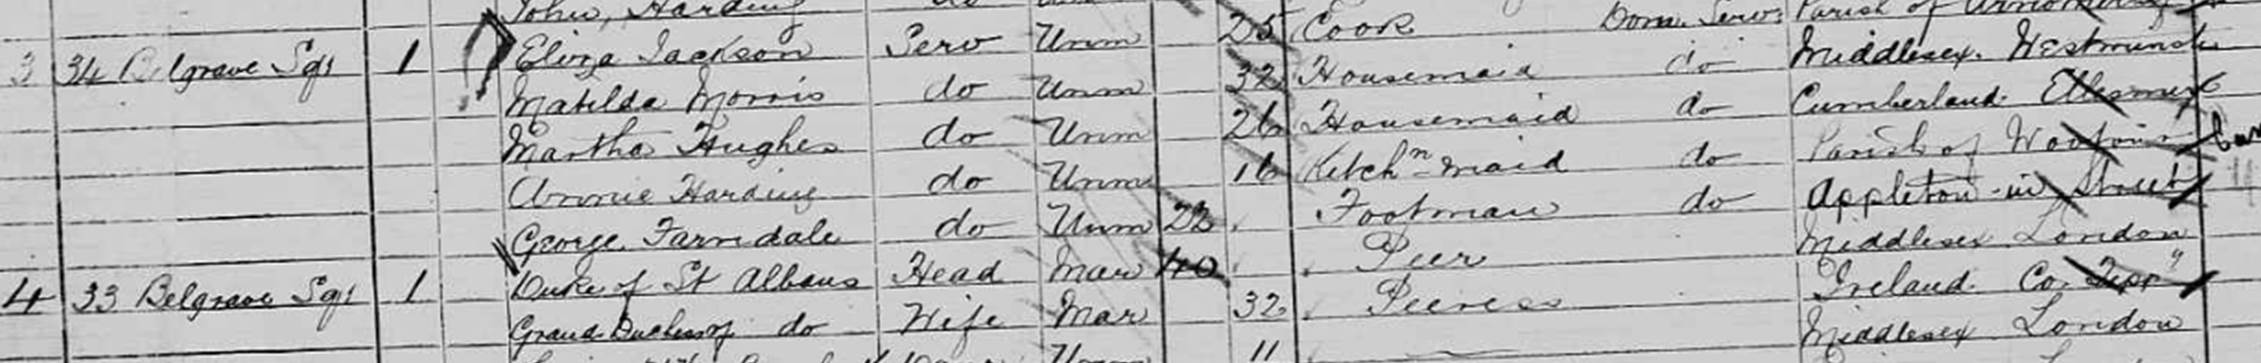 John, Harding do
3 34 Belgrave Sqr 1 Eliza Jackson Serv Unm 25 Cook Dom. Serv. Parish of
Matilda Morris do Unm 32 Housemaid do Middlesex. Westminster
Martha Hughes do Unm 26 Housemaid do Cumberland.
Annie Harding do Unm 16 Kitchn maid do Parish of
George Farndale do Unm 22 Footman do Appleton-in Street
4 33 Belgrave Sqr 1 Duke of St Albans Head Mar 40 Peer Middlesex London
Grace Duchess of do Wife Mar 32 Peeress Ireland Co. Tippy
Unm 11 Middlesex London